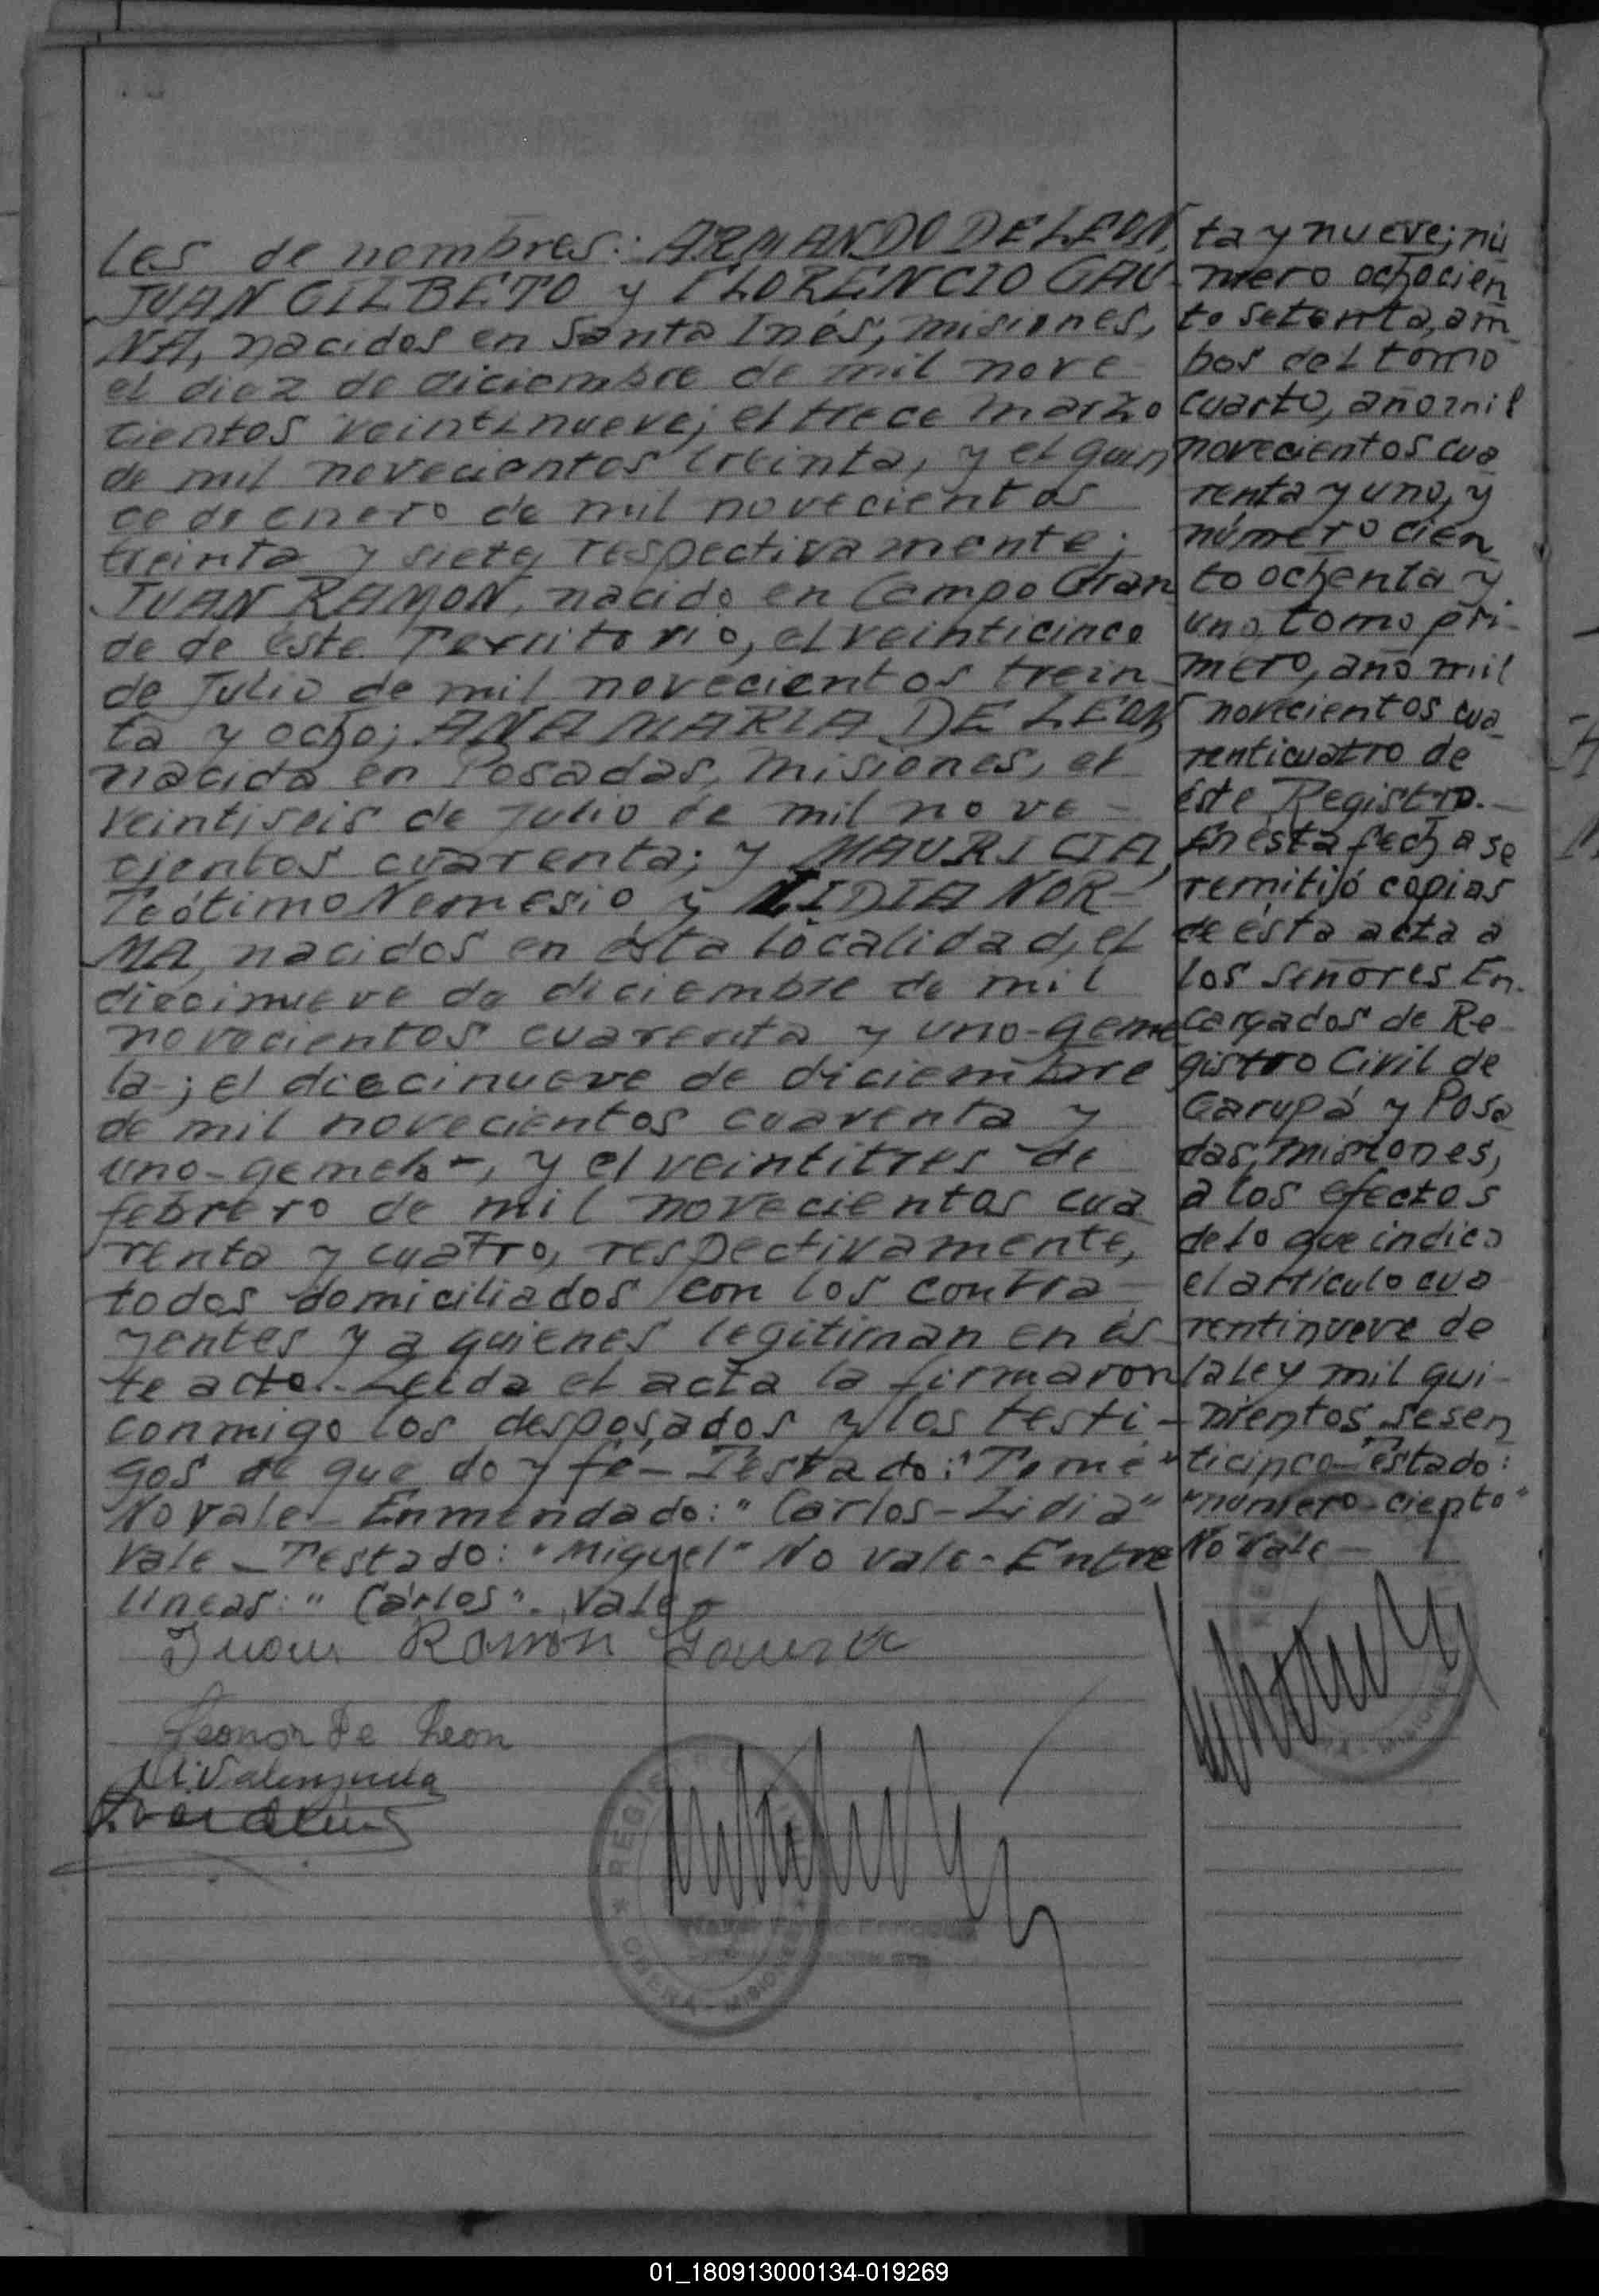 les de nombres: ARMANDO DE LEON,
JUAN GILBETO y FLORENCIO GAU-
NA, nacidos en Santa Inés, misiones,
el diez de diciembre de mil nove
cientos veintinueve; el trece marzo
de mil novecientos treinta, y el quin
ce de enero de mil novecientos
treinta y siete, respectivamente;
JUAN RAMON, nacido en Campo Gran
de de éste Territorio, el veinticinco
de Julio de mil novecientos trein
ta y ocho; ANA MARIA DE LEON
nacida en Posadas, Misiones, el
veintiseis de Julio de mil nove-
cientos cuarenta; y MAURICIA,
Teótimo Nemesio y LIDIA NOR-
MA, nacidos en ésta localidad, el
diecinueve de diciembre de mil
novecientos cuarenta y uno-geme
la-; el diecinueve de diciembre
de mil novecientos cuarenta y
uno-gemelo-, y el veintitres de
febrero de mil novecientos cua
renta y cuatro, respectivamente,
todos domiciliados con los contra-
yentes y a quienes legitiman en és
te acto.- Leída el acta la firmaron
conmigo los desposados y los testi-
gos de que doy fé- Testado: "Tomé"
No vale- Enmendado: "Carlos-Lidia"
Vale- Testado: "Miguel" No vale- Entre
líneas: "Cárlos". Vale-
Juan Ramon Gauna
Leonor De Leon
M. Valenzuela
ta y nueve; nú
mero ochocien
to setenta, am
bos del tomo
cuarto, año mil
novecientos cua
renta y uno, y
número cien
to ochenta y
uno, tomo pri-
mero, año mil
novecientos cua
renticuatro de
éste Registro.-
En ésta fecha se
remitió copias
de ésta acta a
los señores En-
cargados de Re-
gistro Civil de
Garupá y Posa
das, misiones,
a los efectos
de lo que indica
el artículo cua
rentinueve de
la ley mil qui-
nientos sesen
ticinco- Testado:
"número-ciento"
No Vale-
REGI
OBERA - MISIONES
01_180913000134-019269